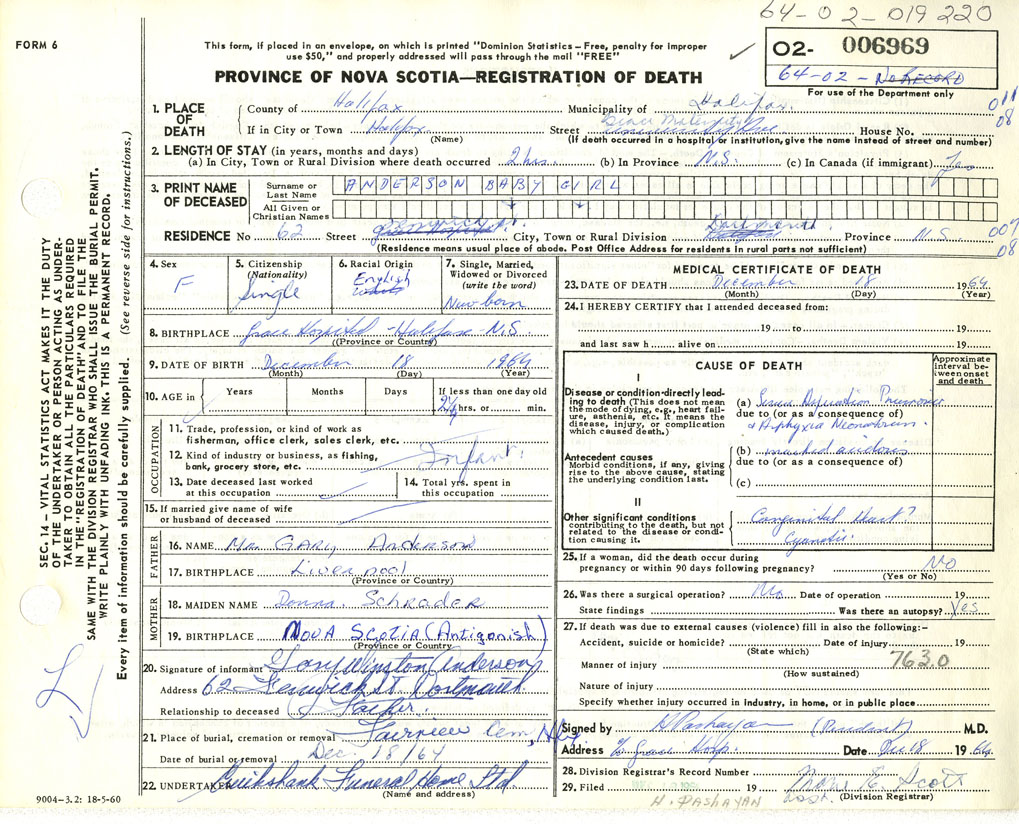 64-02-019220
FORM 6
This form, if placed in an envelope, on which is printed "Dominion Statistics – Free, penalty for improper
use $50," and properly addressed will pass through the mail "FREE"
02- 006969
64-02- No RECORD
For use of the Department only
PROVINCE OF NOVA SCOTIA—REGISTRATION OF DEATH
1. PLACE OF DEATH
County of Halifax Municipality of Halifax
If in City or Town Halifax Street Grace Maternity House No.
(Name) (If death occurred in a hospital or institution, give the name instead of street and number)
011
08
2. LENGTH OF STAY (in years, months and days)
(a) In City, Town or Rural Division where death occurred 2 hrs. (b) In Province N.S. (c) In Canada (if immigrant)
3. PRINT NAME OF DECEASED
Surname or Last Name ANDERSON BABY GIRL
All Given or Christian Names
RESIDENCE No 62 Street Fenwick St. City, Town or Rural Division Dartmouth Province N.S.
(Residence means usual place of abode. Post Office Address for residents in rural parts not sufficient)
009
08
4. Sex
F
5. Citizenship
(Nationality)
Single
6. Racial Origin
English
7. Single, Married,
Widowed or Divorced
(write the word)
New born
8. BIRTHPLACE Grace Hospital - Halifax N.S.
(Province or Country)
9. DATE OF BIRTH December 18 1964
(Month) (Day) (Year)
10. AGE in Years Months Days If less than one day old
2¼ hrs. or min.
OCCUPATION
11. Trade, profession, or kind of work as
fisherman, office clerk, sales clerk, etc.
12. Kind of industry or business, as fishing,
bank, grocery store, etc. Infant.
13. Date deceased last worked
at this occupation
14. Total yrs. spent in
this occupation
15. If married give name of wife
or husband of deceased
FATHER
16. NAME Mr. GARY Anderson
17. BIRTHPLACE Liverpool
(Province or Country)
MOTHER
18. MAIDEN NAME Donna. Schrader
19. BIRTHPLACE NOVA SCOTIA (Antigonish)
(Province or Country
20. Signature of informant Gary Winston Anderson
Address 62 Fenwick St. Dartmouth
Relationship to deceased Father.
21. Place of burial, cremation or removal Fairview Cem,
Date of burial or removal Dec. 18/64
22. UNDERTAKER Cruikshank Funeral Home Ltd
(Name and address)
9004-3.2: 18-5-60
MEDICAL CERTIFICATE OF DEATH
23. DATE OF DEATH December 18 1964
(Month) (Day) (Year)
24. I HEREBY CERTIFY that I attended deceased from:
19 to 19
and last saw h alive on 19
CAUSE OF DEATH
Approximate
interval between
onset
and death
I
Disease or condition directly leading
to death (This does not mean
the mode of dying, e.g., heart failure,
asthenia, etc. It means the
disease, injury, or complication
which caused death.)
(a) Pneumonia
due to (or as a consequence of)
Asphyxia Neonatorum.
Antecedent causes
Morbid conditions, if any, giving
rise to the above cause, stating
the underlying condition last.
(b) marked acidosis
due to (or as a consequence of)
(c)
II
Other significant conditions
contributing to the death, but not
related to the disease or condition
causing it.
Congenital Heart?
Cyanotic.
25. If a woman, did the death occur during
pregnancy or within 90 days following pregnancy? No
(Yes or No)
26. Was there a surgical operation? No Date of operation 19
State findings Was there an autopsy? Yes
27. If death was due to external causes (violence) fill in also the following:–
Accident, suicide or homicide? Date of injury 19
(State which)
Manner of injury 763.0
(How sustained)
Nature of injury
Specify whether injury occurred in industry, in home, or in public place
Signed by H Pashayan (Resident) M.D.
Address Grace Hosp. Date Dec 18 1964
28. Division Registrar's Record Number
29. Filed 19 E. Scott
H. PASHAYAN asst. (Division Registrar)
SEC. 14 – VITAL STATISTICS ACT MAKES IT THE DUTY
OF THE UNDERTAKER OR PERSON ACTING AS UNDERTAKER
TO OBTAIN ALL THE PARTICULARS REQUIRED
IN THE "REGISTRATION OF DEATH" AND TO FILE THE
SAME WITH THE DIVISION REGISTRAR WHO SHALL ISSUE THE BURIAL PERMIT.
WRITE PLAINLY WITH UNFADING INK. THIS IS A PERMANENT RECORD.
Every item of information should be carefully supplied. (See reverse side for instructions.)